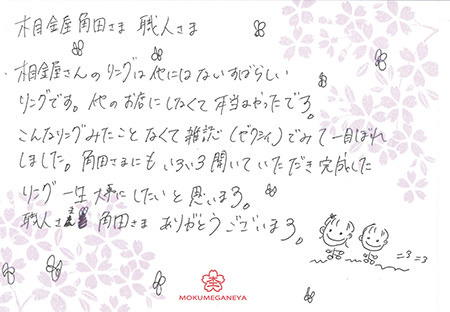 杢目金屋角田さま 職人さま
杢目金屋さんのリングは他にはないすばらしい
リングです。他のお店にしなくて本当よかったです。
こんなリングみたことなくて雑誌(ゼクシィ)でみて一目ぼれ
しました。角田さまにもいろいろ聞いていただき完成した
リング一生大事にしたいと思います。
職人さま 角田さま ありがとうございます。
MOKUMEGANEYA